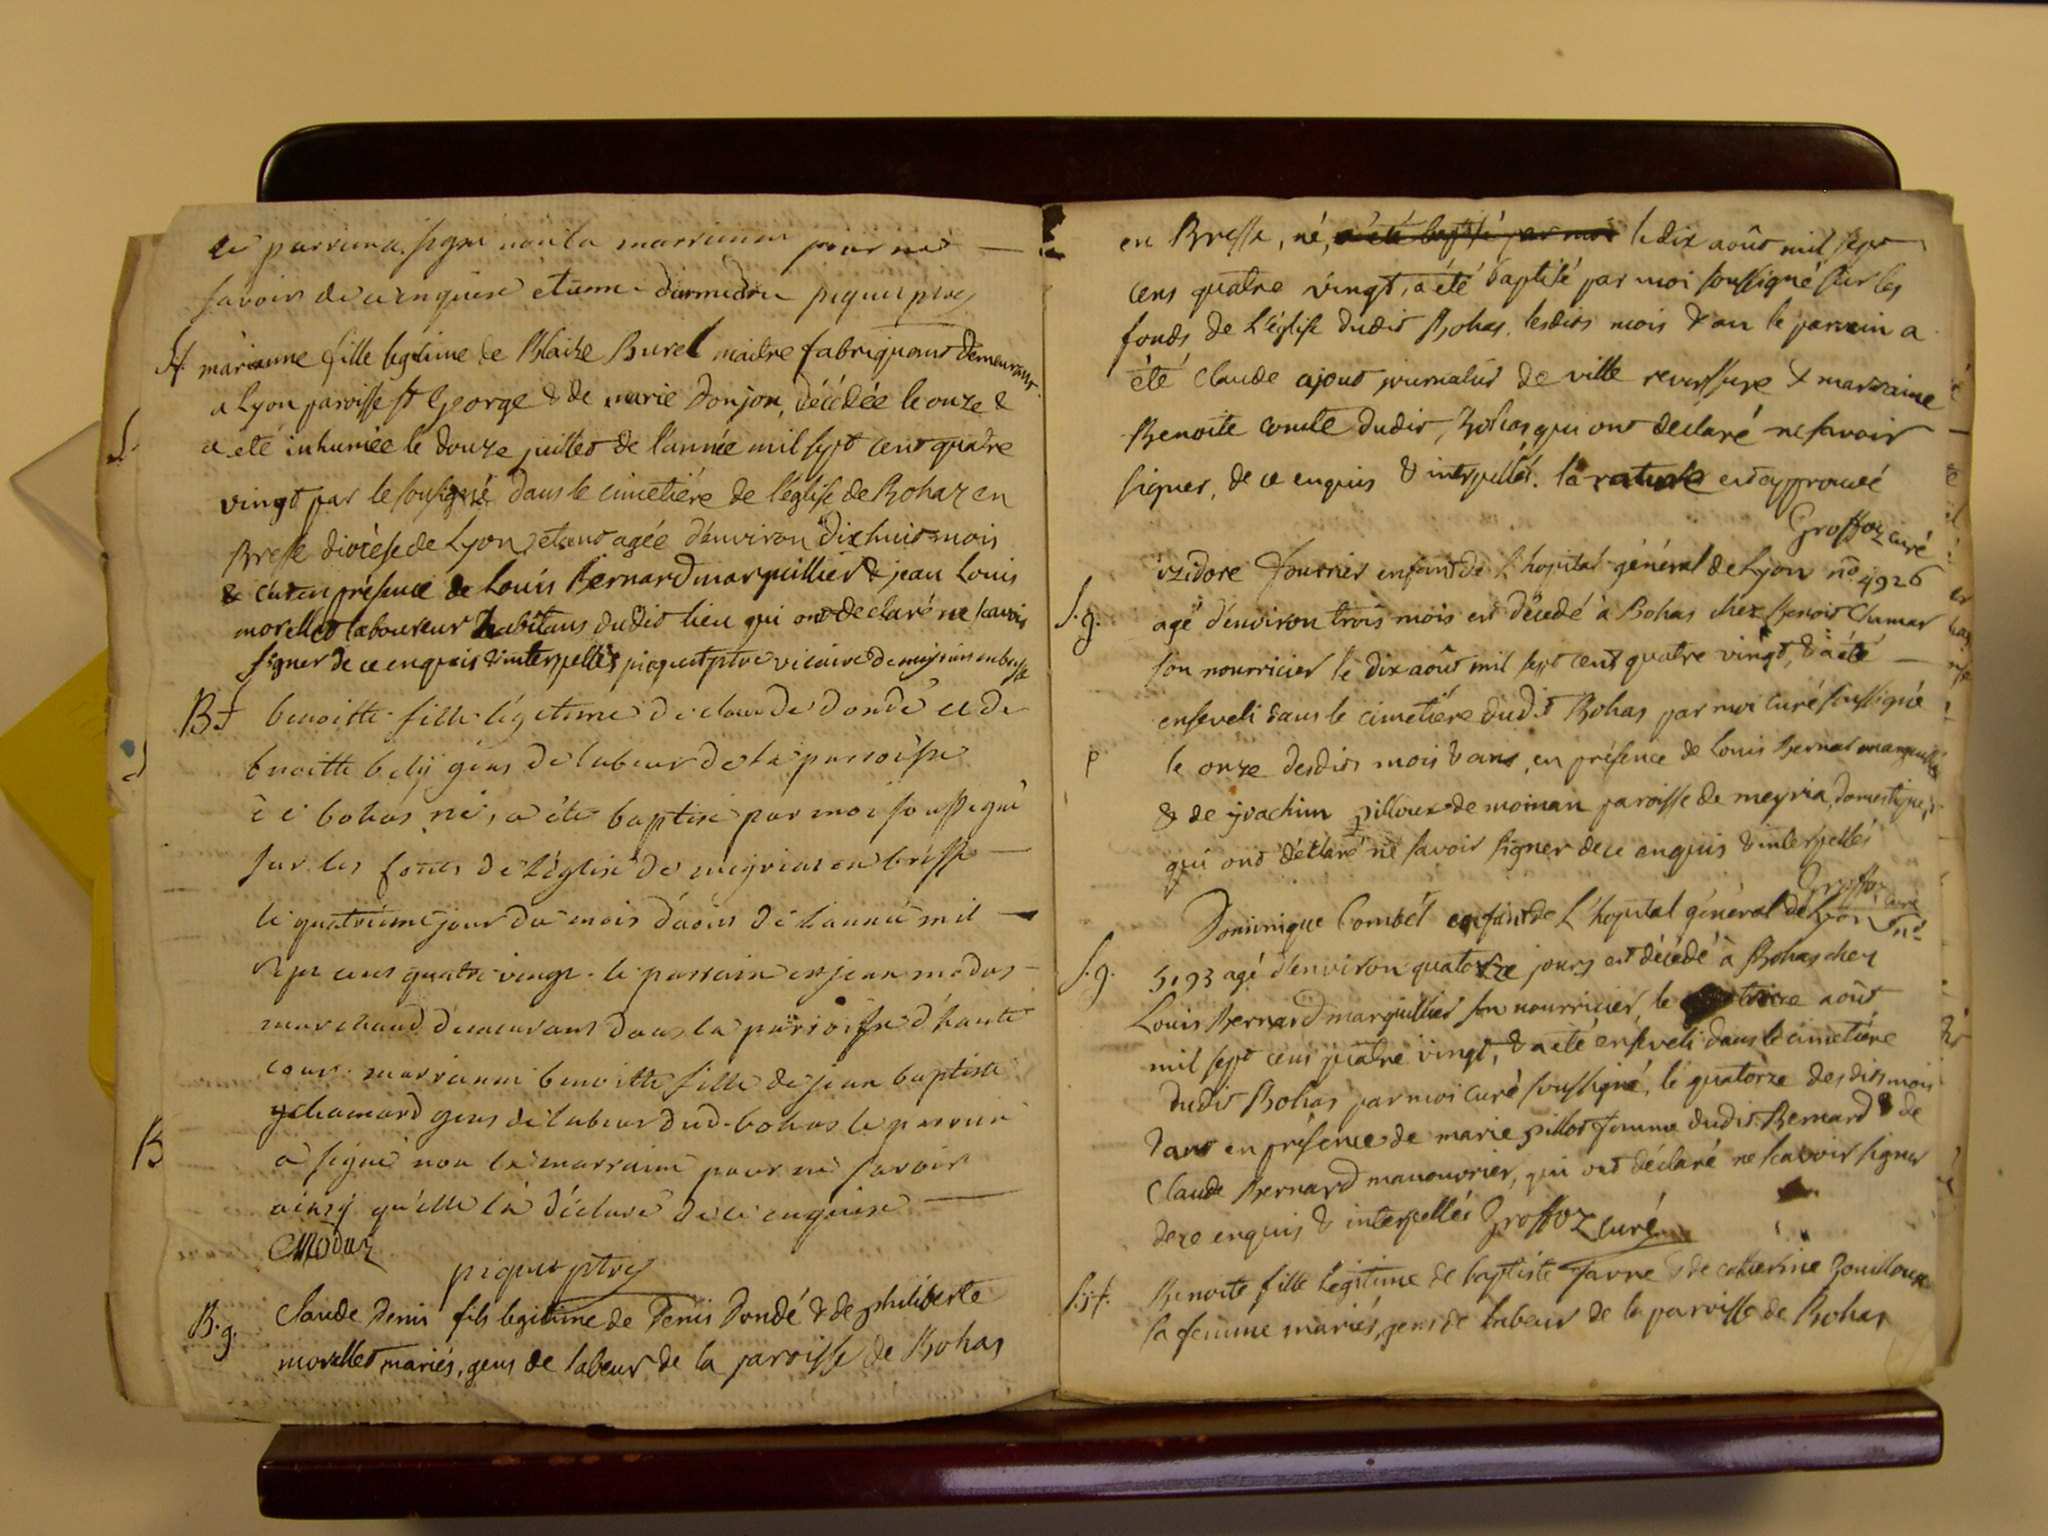 le parrain a signé non la marraine pour ne
savoir de ce enquise piquet ptre
Sf. marianne fille legitime de Blaize Burel maitre fabriquant demeurant
a Lyon paroisse st George & de marie Donjon, décédée le onze &
S. a été inhumée le douze juillet de l'année mil sept cent quatre
vingt par le soussigné dans le cimetiére de l'église de Bohaz en
Bresse diocése de Lyon, etant agée d'environ dix huit mois
& ce en présence de Louis Bernard marguillier & jean Louis
morellet laboureur habitans dudit lieu qui ont declaré ne scavoir
signer de ce enquis & interpellés piquet ptre vicaire de meyriat en bresse
Bf benoitte fille légitime de claude dondé et de
benoitte bely gens de labeur de la parroisse
de bohas né, a été baptisé par moi soussigné
sur les fonts de l'église de meyriat en bresse
le quatriéme jour du mois d'août de l'année mil
sept cens quatre vingt. le parrain est jean modas
marchand demeurant dans la parroisse d'haute
cour. marraine benoitte fille de jean baptiste
chamard gens de labeur dud. bohas le parrain
B a signé non la marraine pour ne savoir
ainsy qu'elle la déclaré de ce enquise
Modaz
piquet ptre
B.g. Claude Denis fils legitime de Denis Dondé & de philiberte
morellet mariés, gens de labeur de la paroisse de Bohas
en Bresse, né, a été baptisé par moi le dix août mil sept
cens quatre vingt, a été baptisé par moi soussigné sur les
fonds de l'église dudit Bohas, lesdits mois & an le parrain a
été Claude ajout de ville reversure & marraine
Benoite comte dudit Bohas qui ont déclaré ne savoir
signer, de ce enquis & interpellés. la rature est approuvé
Groffoz curé
izidore Fourrier enfant de L'hopital général de Lyon no 4926
S.g. agé d'environ trois mois est décedé à Bohas chez benoit Chamar
son nourricier le dix août mil sept cent quatre vingt, & a été
enseveli dans le cimetiére dudit Bohas par moi curé soussigné
p le onze desdits mois & ans, en présence de Louis Bernard marguillier
& de joachim pilloux de moinan paroisse de meyria, domestique,
qui ont déclaré ne savoir signer de ce enquis & interpellés
Groffoz curé
Dominique Combét enfant de L'hopital général de Lyon no
S.g. 5193 agé d'environ quatorze jours est décédé à Bohas chez
Louis Bernard marguillier son nourricier, le treize août
mil sept cens quatre vingt, & a été enseveli dans le cimetiére
dudit Bohas par moi curé soussigné, le quatorze desdits mois
& ans en présence de marie pillot femme dudit Bernard & de
Claude Bernard manouvrier, qui ont déclaré ne scavoir signer
de ce enquis & interpellés Groffoz curé
S.f. Benoite fille legitime de baptiste Favre & de catherine Gouilloux
sa femme mariés, gens de labeur de la paroisse de Bohas